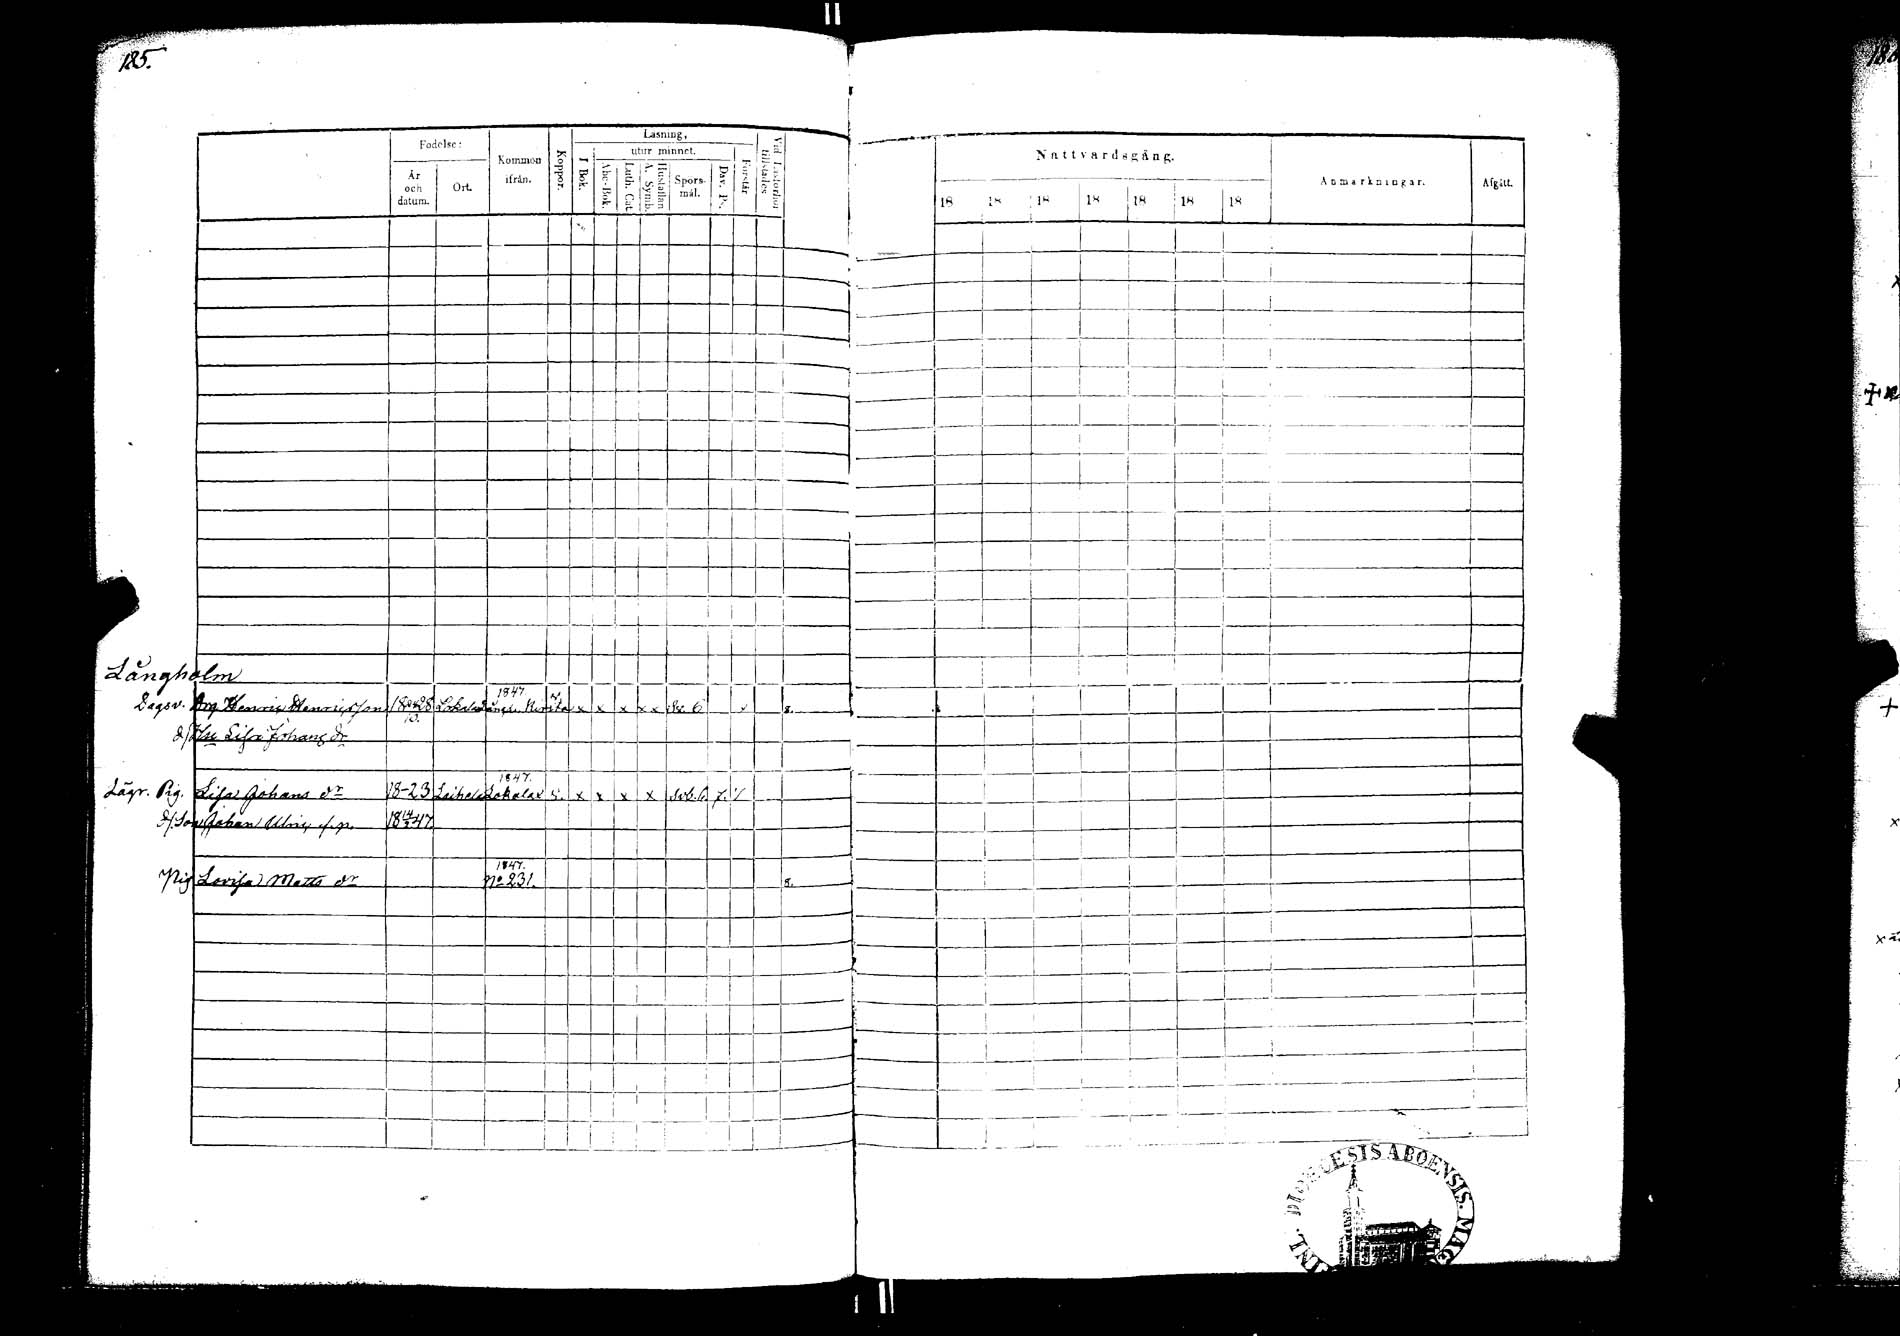 185.
Fodelse:
År och datum.
Ort.
Kommon ifrån.
Koppor.
Läsning,
I Bok.
utur minnet.
Abc-Bok.
Luth. Cat.
Hustaflan A. Symb.
Spors-mål.
Dav. Ps.
Förstår
Vid Läsförhör tillstädes
Nattvardsgång.
18 18 18 18 18 18 18
Anmärkningar.
Afgått.
Långholm
1847.
Dagsv. Henric Henricsson 18 28 x x x x x 6 x 8.
Lisa Johans dr
1847.
Lägr. Pig. Lisa Johans dr 18-23 Laihela Lokalax s. x x x x 7.
Son Johan Ulric 18 47.
1847.
Pig Lovisa Matts dr No 231. 8.
DIOECESIS ABOENSIS. MAG